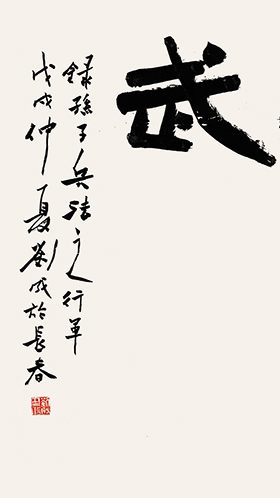 武
錄孫子兵法之行軍
戊戌仲夏劉成於長春